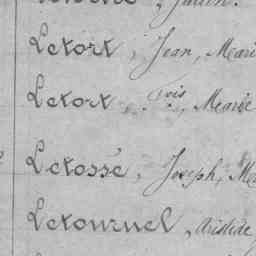 Letort, Jean, Mari
Letort, Fois, Marie
Letosse, Joseph, Ma
Letournel, Aristide